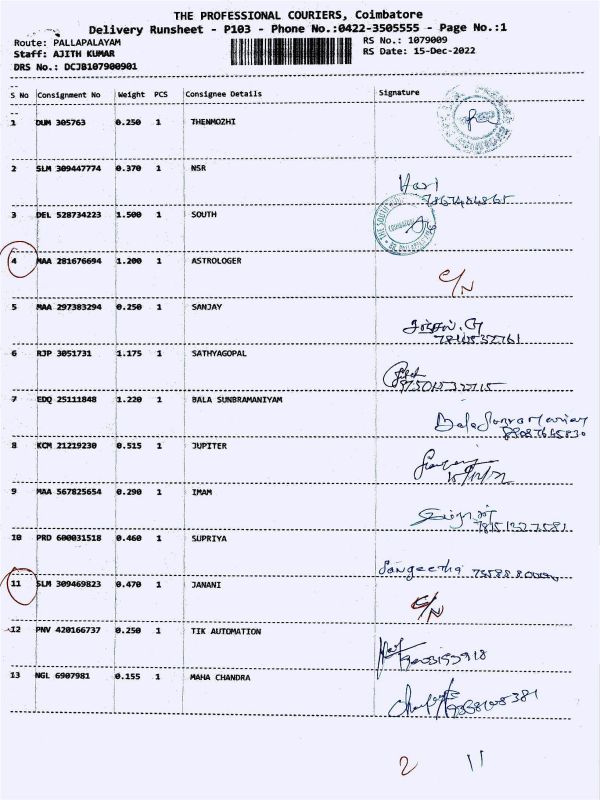 THE PROFESSIONAL COURIERS, Coimbatore
Delivery Runsheet - P103 - Phone No.:0422-3505555 - Page No.:1
Route: PALLAPALAYAM
RS No.: 1079009
Staff: AJITH KUMAR
RS Date: 15-Dec-2022
DRS No.: DCJB107900901
S No Consignment No Weight PCS Consignee Details Signature
1 DUM 305763 0.250 1 THENMOZHI
2 SLM 309447774 0.370 1 NSR Hari
3 DEL 528734223 1.500 1 SOUTH
4 MAA 281676694 1.200 1 ASTROLOGER C/N
5 MAA 297383294 0.250 1 SANJAY
6 RJP 3051731 1.175 1 SATHYAGOPAL
7 EDQ 25111848 1.220 1 BALA SUNBRAMANIYAM
8 KCM 21219230 0.515 1 JUPITER
15/12/22
9 MAA 567825654 0.290 1 IMAM
10 PRD 600031518 0.460 1 SUPRIYA Sangeetha
11 SLM 309469823 0.470 1 JANANI C/N
12 PNV 420166737 0.250 1 TIK AUTOMATION
13 NGL 6907981 0.155 1 MAHA CHANDRA
2 11